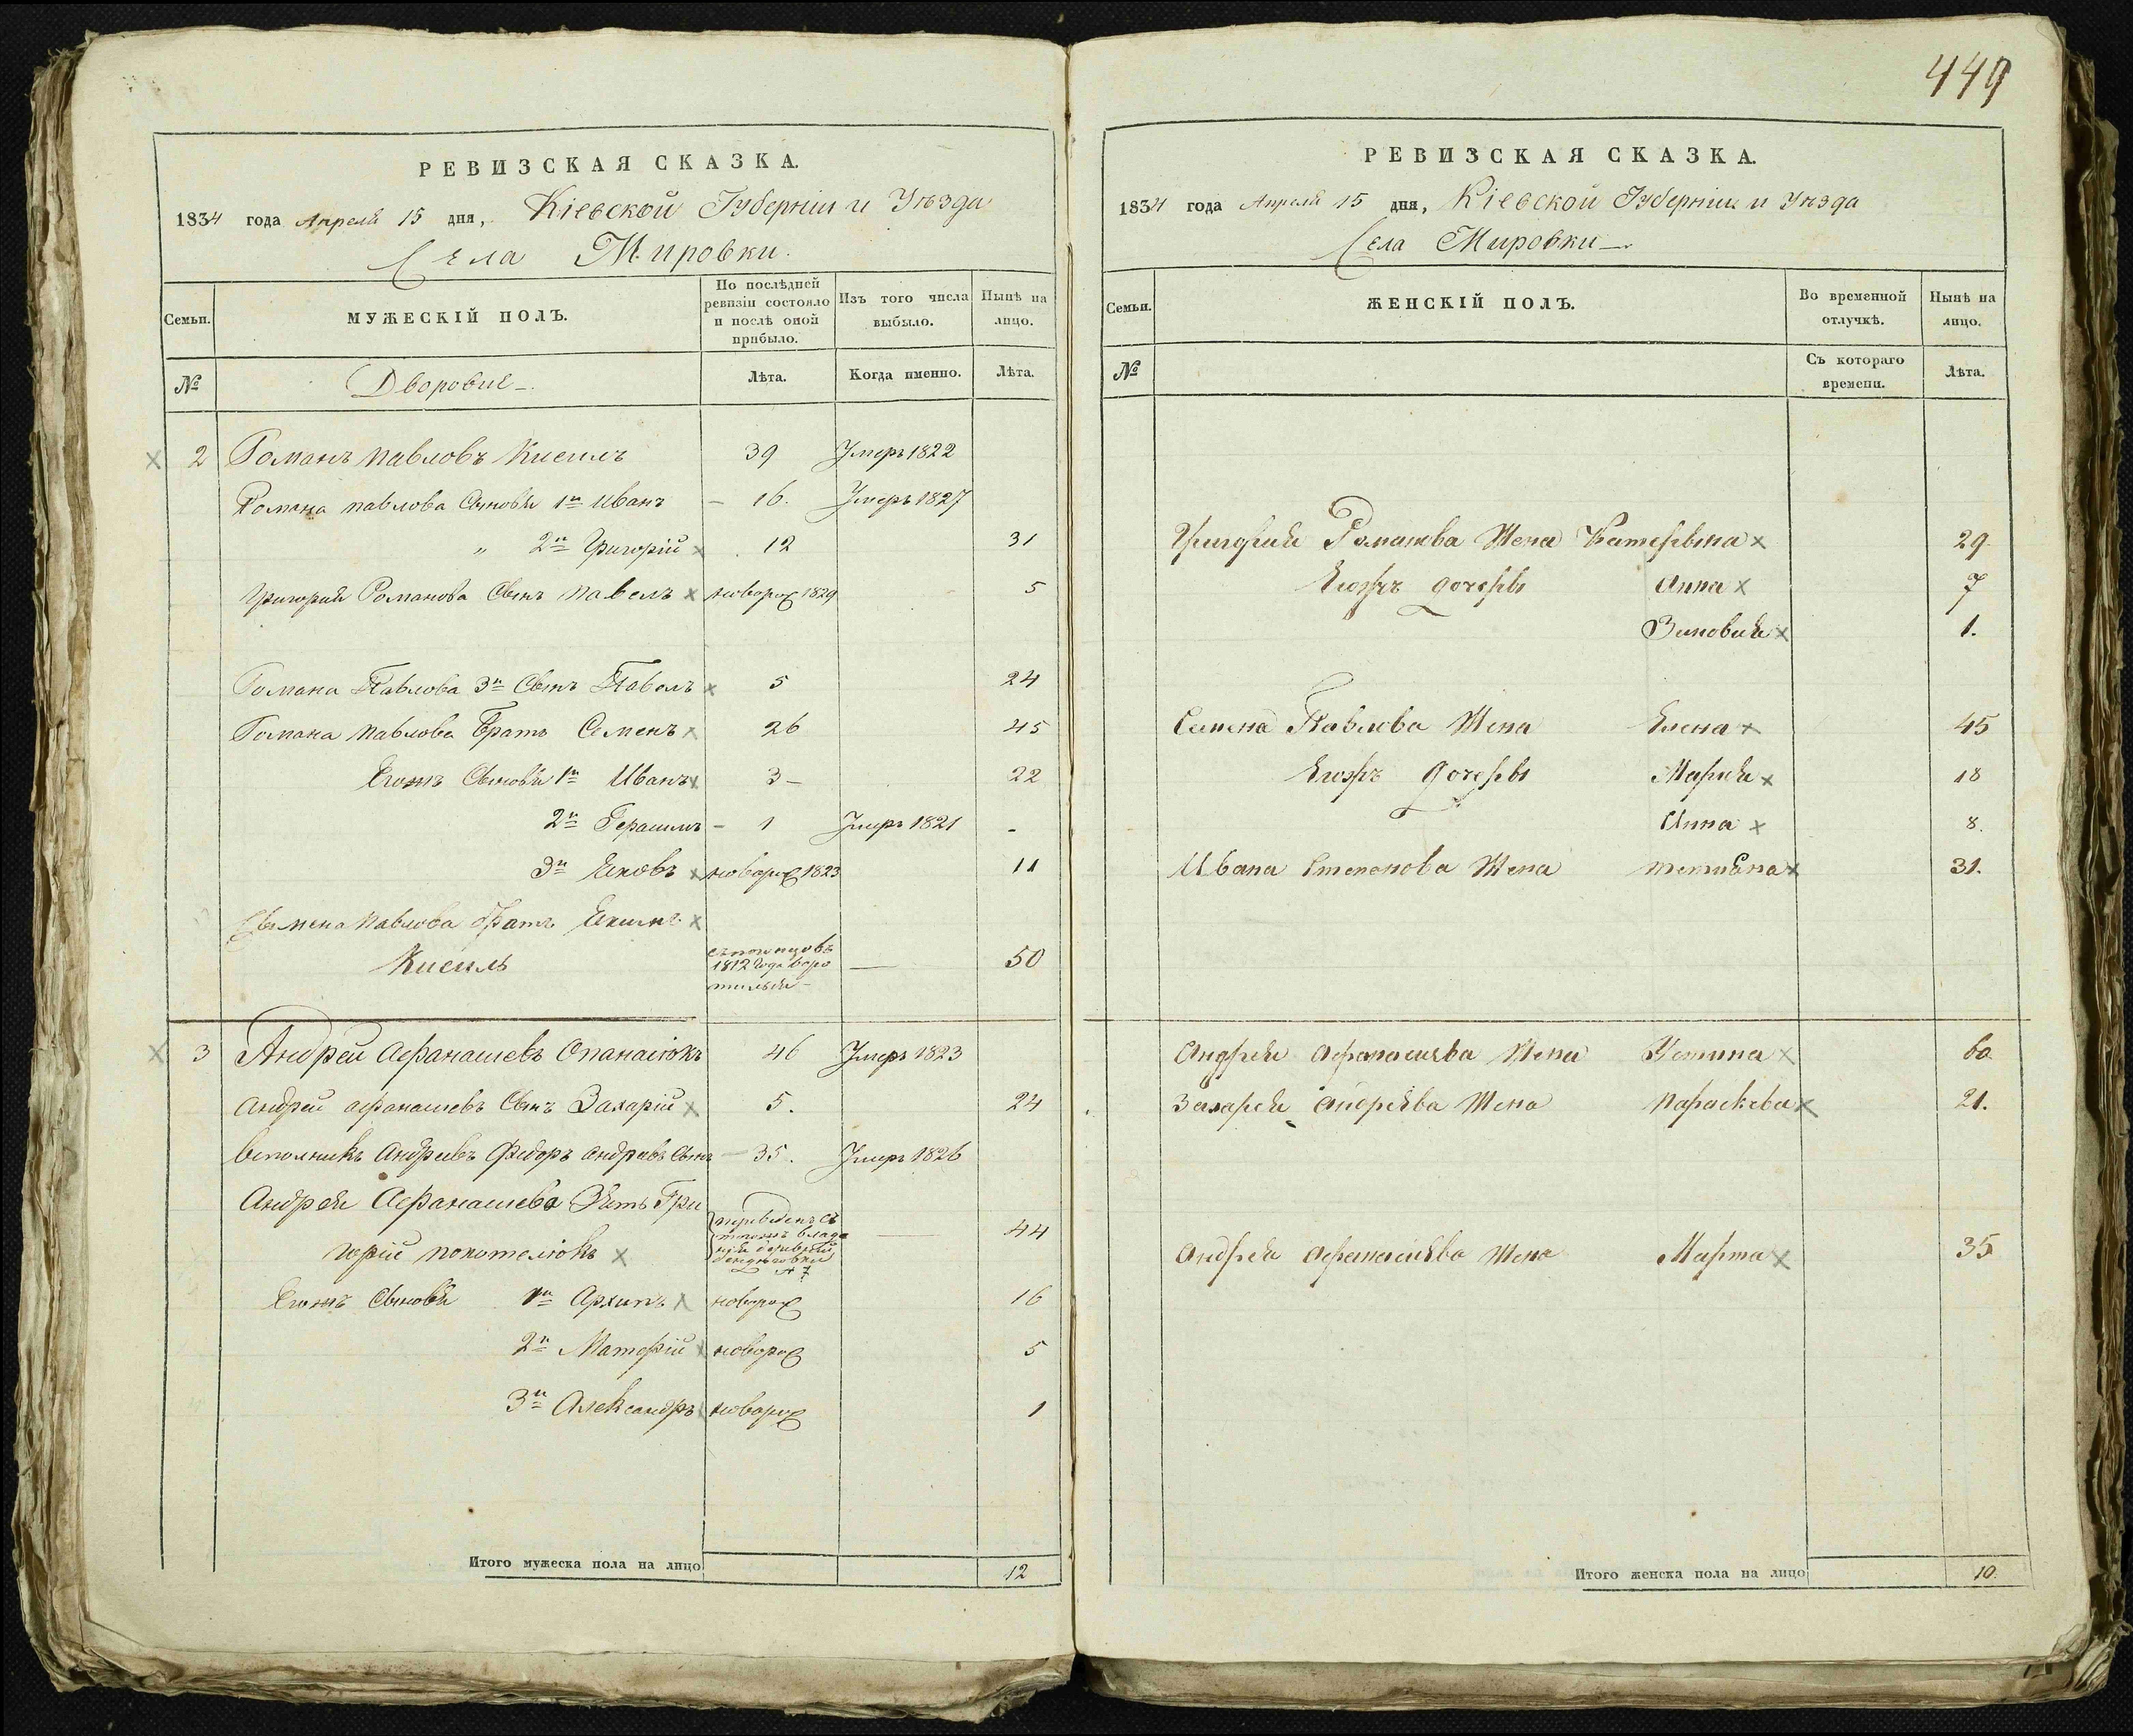 449
РЕВИЗСКАЯ СКАЗКА.
1834 года Апреля 15 дня, Кіевской Губерніи и Уѣзда
Села Мировки.
Семьи.
МУЖЕСКІЙ ПОЛЪ.
По послѣдней ревизіи состояло и послѣ оной прибыло.
Изъ того числа выбыло.
Нынѣ на лицо.
№
Дворовые
Лѣта.
Когда именно.
Лѣта.
2 Романъ павловъ Кисиль 39 Умеръ 1822
Романа павлова Сыновья 1й Иванъ 16. Умеръ 1827
" 2й Григорій 12 31
Григорія Романова Сынъ павелъ новорож 1829 5
Романа Павлова 3й Сынъ Павелъ 5 24
Романа павлова Братъ Семенъ 26 45
Егожъ Сыновья 1й Иванъ 3 22
2й Герасимъ 1 Умеръ 1821
3й Яковъ новорож 1823 11
Семена павлова братъ Якимъ
Кисиль 1812 года воро тился 50
3 Андрей Афанасиевъ Опанасюкъ 46 Умеръ 1823
Андрей афанасиевъ Сынъ Захарій 5. 24
Андреевъ Федоръ андреевъ Сынъ 35. Умеръ 1826
Андрея Афанасиева Зять Гри
горій 44
Егожъ Сыновья 1й Архипъ новорож 16
2й Матфій новорож 5
3й Александръ новорож 1
Итого мужеска пола на лицо 12
РЕВИЗСКАЯ СКАЗКА.
1834 года Апреля 15 дня, Кіевской Губерніи и Уѣзда
Села Мировки
Семьи.
ЖЕНСКІЙ ПОЛЪ.
Во временной отлучкѣ.
Нынѣ на лицо.
№
Съ котораго времени.
Лѣта.
Григорія Романова Жена Катерына 29
Егожъ дочеры Анна 7
Зиновия 1.
Семена Павлова Жена Елена 45
Егожъ дочеры Мария 18
Анна 8.
Ивана Жена 31.
Андрея Афанасиева Жена Устина 60
Захарея Андреева Жена параскева 21.
Андрея Афанасиева Жена Марта 35
Итого женска пола на лицо 10.